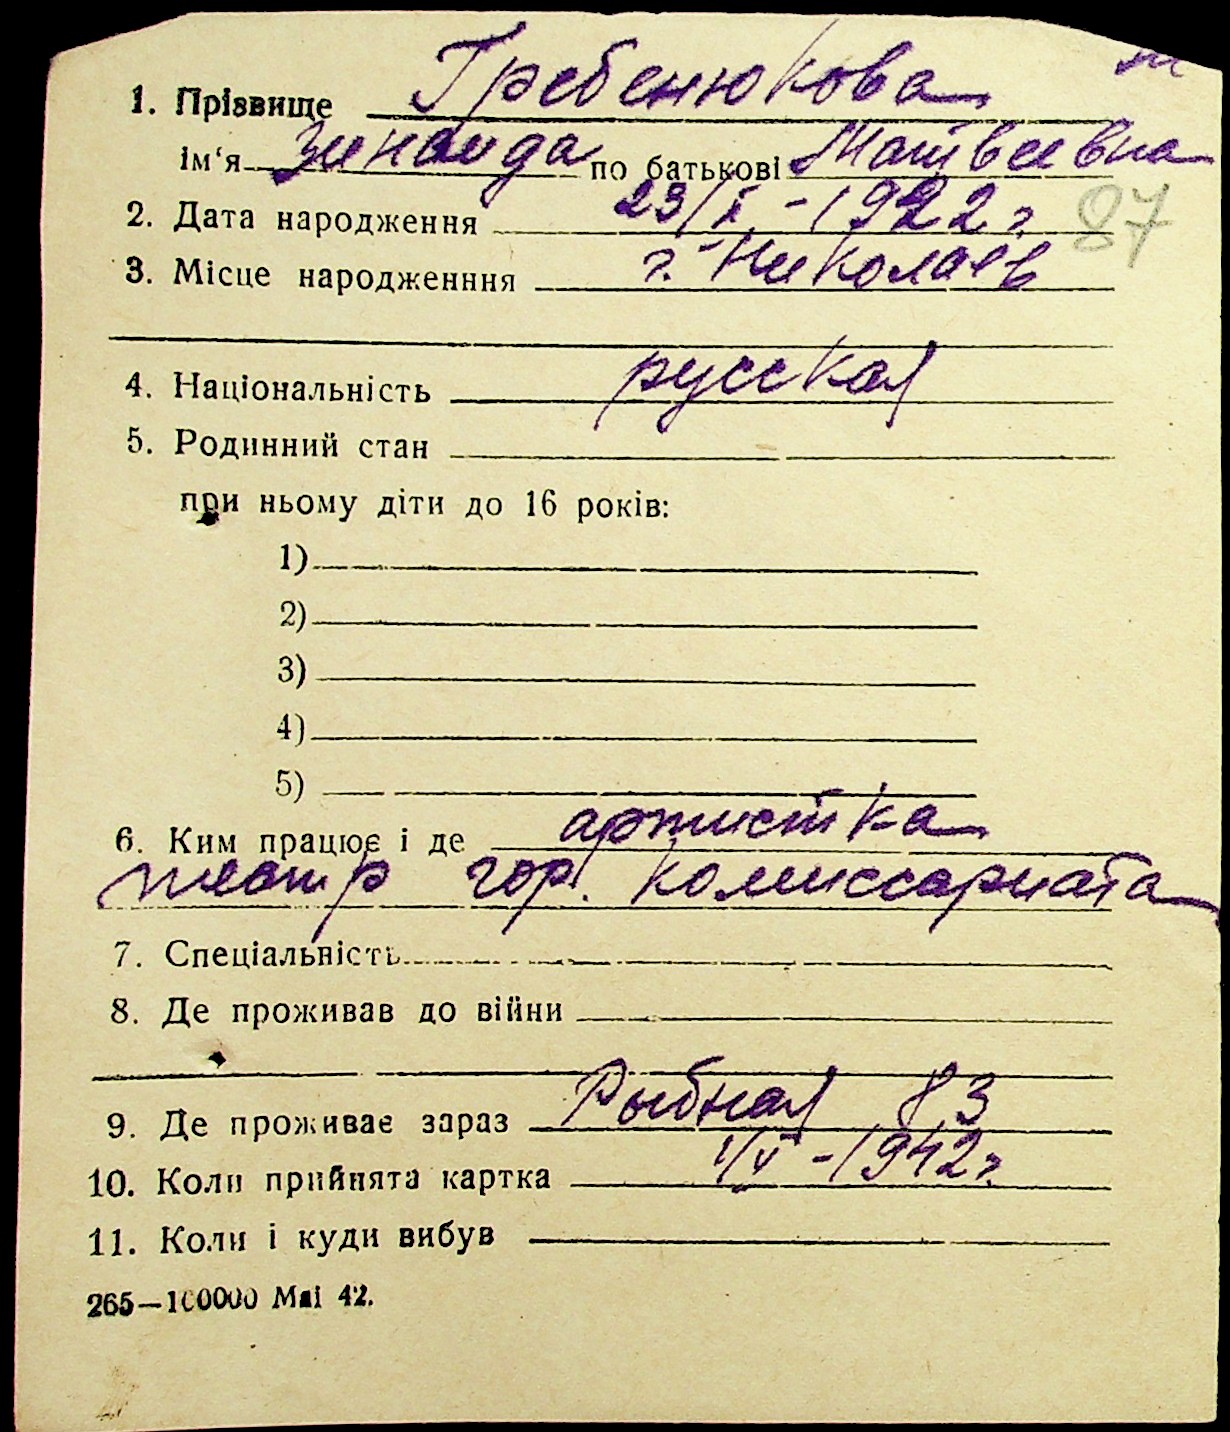 1. Прізвище Гребенюкова
ім‘я Зинаида по батькові Матвеевна
2. Дата народження 23/X - 1922 г.
87
3. Місце народженння г. Николаев
4. Національність русская
5. Родинний стан
при ньому діти до 16 років:
1)
2)
3)
4)
5)
6. Ким працює і де артистка
театр гор. комиссариата
7. Спеціальність
8. Де проживав до війни
9. Де проживає зараз Рыбная 83
10. Коли прийнята картка 1/V - 1942 г.
11. Коли і куди вибув
265—100000 Маі 42.